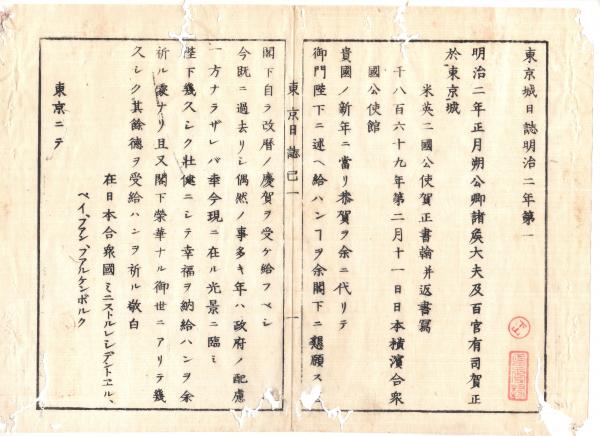 東京城日誌明治二年第一
明治二年正月朔公卿諸矦大夫及百官有司賀正
於東京城
米英二國公使賀正書翰并返書寫
千八百六十九年第二月十一日日本横濱合衆
國公使館
貴國ノ新年ニ當リ恭賀ヲ余ニ代リテ
御門陛下ニ述ヘ給ハンヿヲ余閣下ニ懇願ス
東京日誌己一
一
閣下自ラ改暦ノ慶賀ヲ受ケ給フベシ
今既ニ過去リシ偶然ノ事多キ年ハ政府ノ配慮
一方ナラザレバ幸今現ニ在ル光景ニ臨ミ
陛下幾久シク壮健ニシテ幸福ヲ納給ハンヲ余
祈ル處ナリ且又閣下榮華ナル御世ニアリテ幾
久シク其餘德ヲ受給ハンヲ祈ル敬白
在日本合衆國ミニストルレシデントヱル、
ベイ、ブァン、ブァルケンボルク
東京ニテ